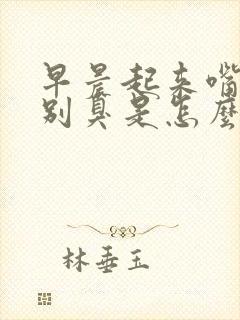 早晨起来嘴
别臭是怎麼
林垂玉